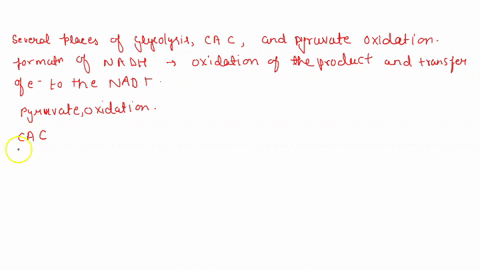 Several places of glycolysis, CAC, and pyruvate oxidation.
formatn of NADH → oxidation of the product and transfer
of e- to the NAD+.
pyruvate, oxidation.
CAC